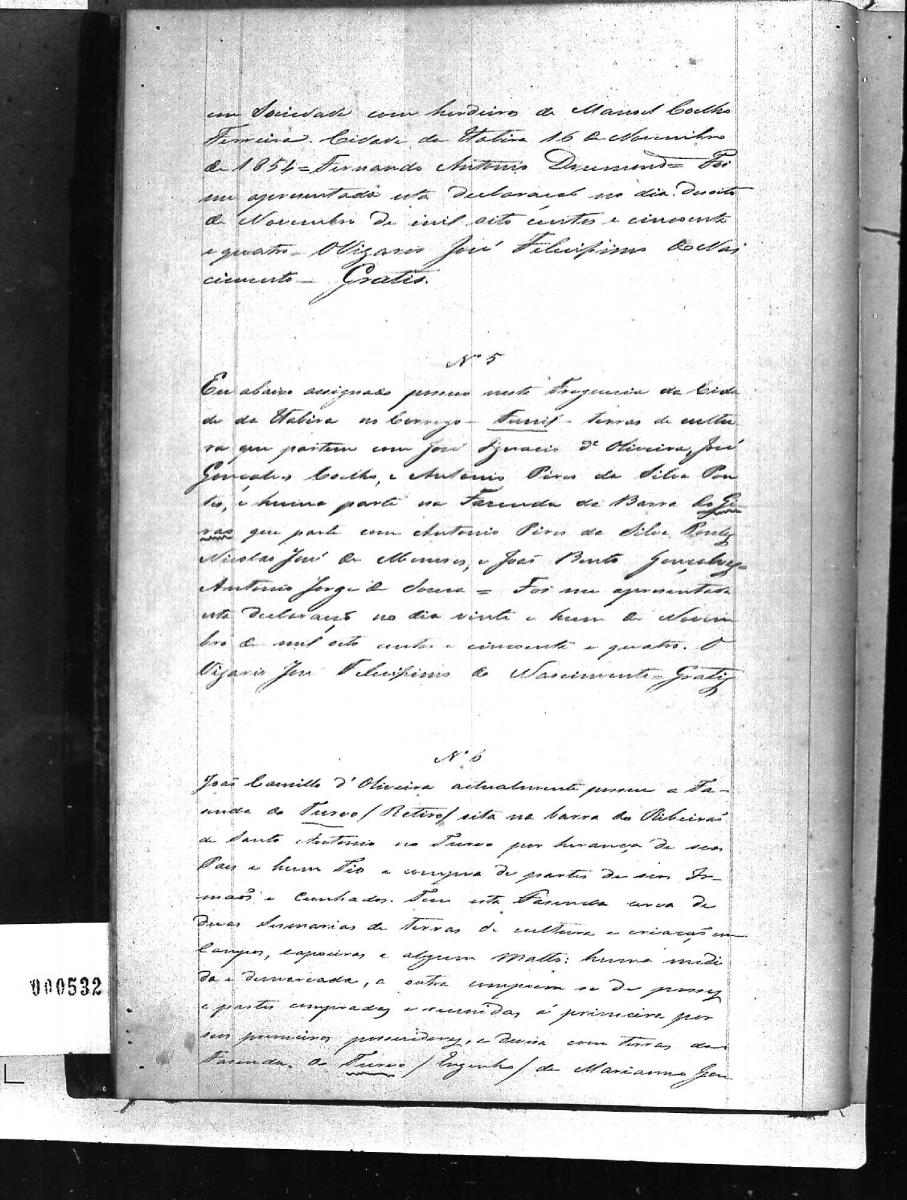 em Sociedade com herdeiros de Manoel Coelho
Ferreira. Cidade da Itabira 16 de Novembro
de 1854 = Fernando Antonio Drumond = Foi
me apresentada esta declaracaõ no dia desoito
de Novembro de mil oito centos e cincoenta
e quatro - O Vigario José Felicissimo do Nas
cimento - Gratis.
Nº 5
Eu abaixo assignado possuo nesta Freguezia da Cida
de da Itabira no Corrego - Funil - terras de cultu
ra que partem com José Ignacio d'Oliveira, José
Gonçalves Coelho, e Antonio Pires da Silva Pon
tes, e huma parte na Fazenda da Barra do Gi
rao que parte com Antonio Pires da Silva Pontes
Nicolao José de Meneses, e João Bento Gonçalves -
Antonio Jorge de Souza = Foi me apresentada
esta declaraçaõ no dia vinte e hum de Novem
bro de mil oito centos e cincoenta e quatro. O
Vigario José Felicissimo do Nascimento = Gratis
Nº 6
João Camillo d'Oliveira actualmente possue a Fa
zenda do Turvo / Retiro / sita na barra do Ribeiraõ
de Santo Antonio no Turvo por herança de seos
Pais e hum Tio e compra de partes de seos Ir
mãos e Cunhados. Tem esta Fazenda cerca de
duas Sesmarias de terras de cultura e criaçaõ em
Campos, capoeiras e algum Matto: huma medi
da e demarcada, a outra compoem se de posses
e partes compradas e reunidas á primeira por
seos primeiros possuidores, e divisa com terras da
Fazenda do Turvo / Engenho / de Marianno Gon
000532